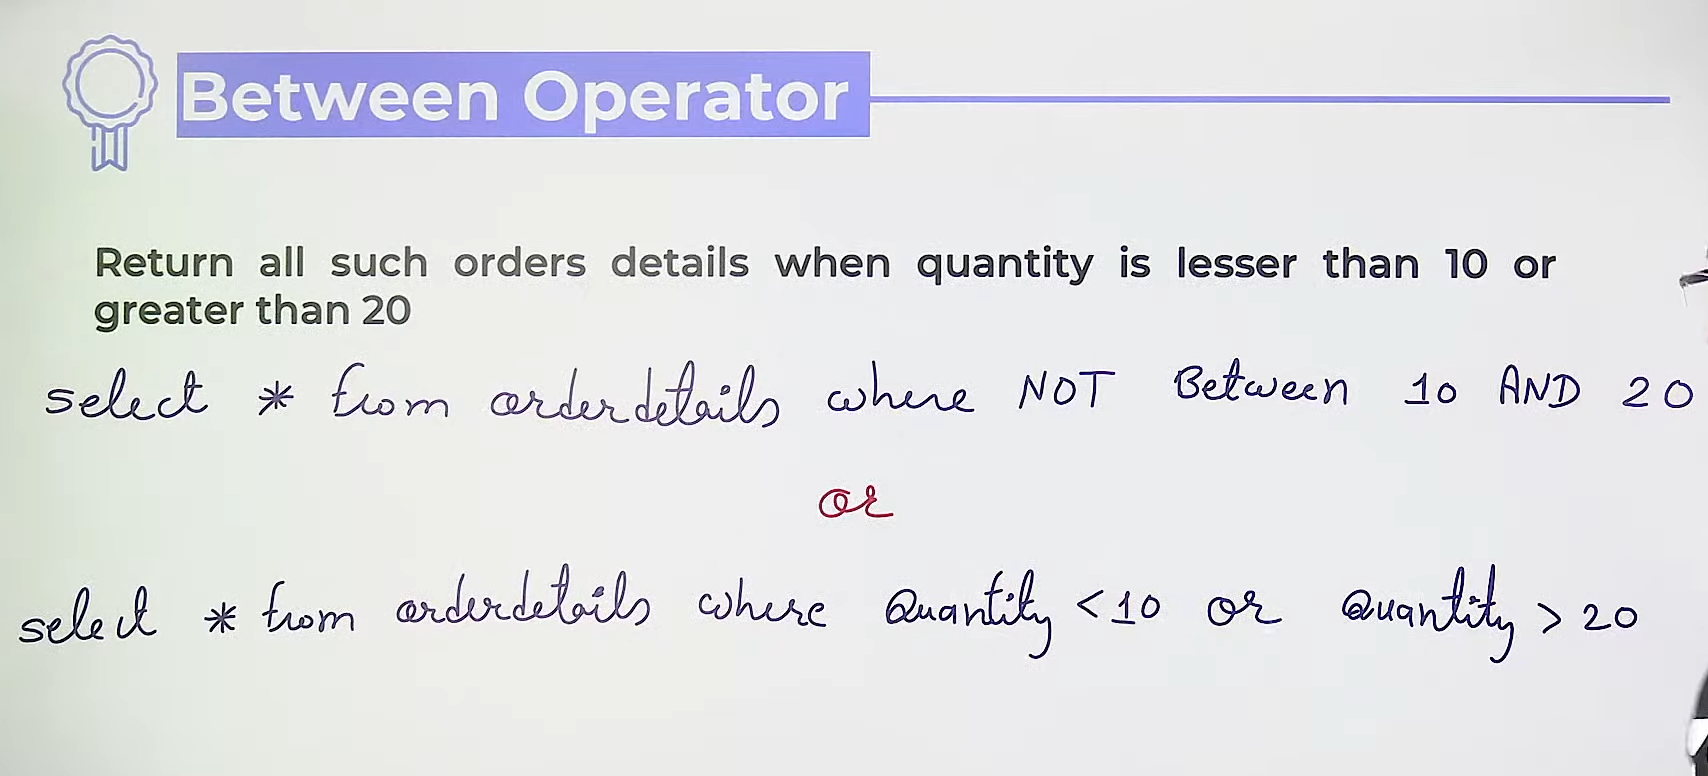 Between Operator
Return all such orders details when quantity is lesser than 10 or
greater than 20
select * from orderdetails where NOT Between 10 AND 20
or
select * from orderdetails where Quantity <10 or Quantity > 20